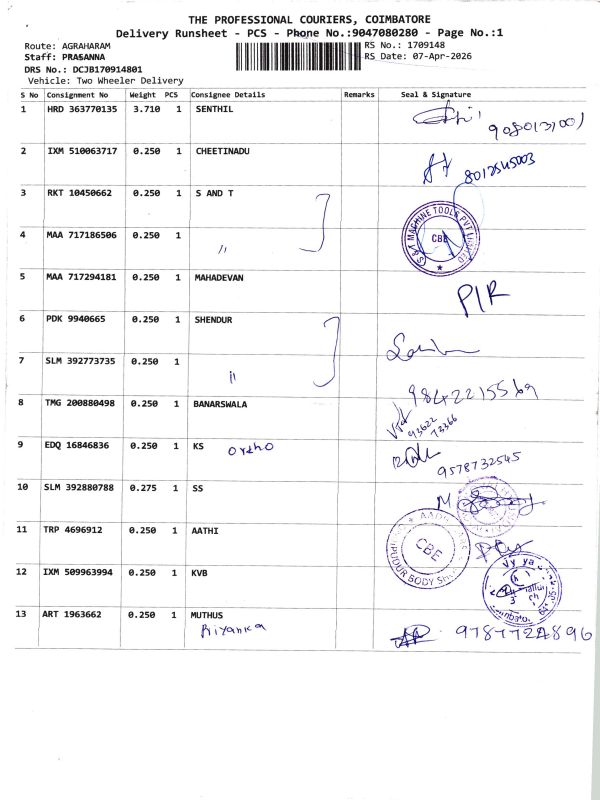 THE PROFESSIONAL COURIERS, COIMBATORE
Delivery Runsheet - PCS - Phone No.:9047080280 - Page No.:1
Route: AGRAHARAM RS No.: 1709148
Staff: PRASANNA RS Date: 07-Apr-2026
DRS No.: DCJB170914801
Vehicle: Two Wheeler Delivery
S No Consignment No Weight PCS Consignee Details Remarks Seal & Signature
1 HRD 363770135 3.710 1 SENTHIL
2 IXM 510063717 0.250 1 CHEETINADU
8012545003
3 RKT 10450662 0.250 1 S AND T
S & T MACHINE TOOLS PVT LIMITED
CBE
4 MAA 717186506 0.250 1 "
5 MAA 717294181 0.250 1 MAHADEVAN
P/R
6 PDK 9940665 0.250 1 SHENDUR
7 SLM 392773735 0.250 1 "
9842215569
8 TMG 200880498 0.250 1 BANARSWALA
93622
73366
9 EDQ 16846836 0.250 1 KS Ortho
9578732545
10 SLM 392880788 0.275 1 SS
11 TRP 4696912 0.250 1 AATHI
CBE
12 IXM 509963994 0.250 1 KVB
13 ART 1963662 0.250 1 MUTHUS
Riyanka